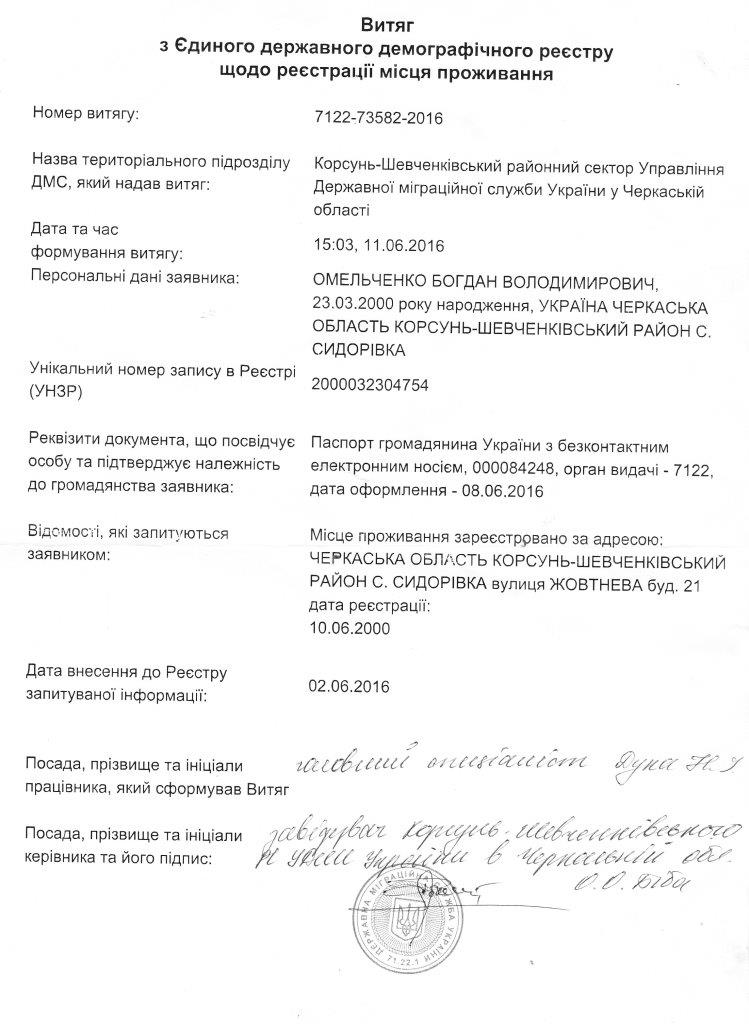 Витяг
з Єдиного державного демографічного реєстру
щодо реєстрації місця проживання
Номер витягу: 7122-73582-2016
Назва територіального підрозділу
ДМС, який надав витяг:
Корсунь-Шевченківський районний сектор Управління
Державної міграційної служби України у Черкаській
області
Дата та час
формування витягу:
15:03, 11.06.2016
Персональні дані заявника:
ОМЕЛЬЧЕНКО БОГДАН ВОЛОДИМИРОВИЧ,
23.03.2000 року народження, УКРАЇНА ЧЕРКАСЬКА
ОБЛАСТЬ КОРСУНЬ-ШЕВЧЕНКІВСЬКИЙ РАЙОН С.
СИДОРІВКА
Унікальний номер запису в Реєстрі
(УНЗР)
2000032304754
Реквізити документа, що посвідчує
особу та підтверджує належність
до громадянства заявника:
Паспорт громадянина України з безконтактним
електронним носієм, 000084248, орган видачі - 7122,
дата оформлення - 08.06.2016
Відомості, які запитуються
заявником:
Місце проживання зареєстровано за адресою:
ЧЕРКАСЬКА ОБЛАСТЬ КОРСУНЬ-ШЕВЧЕНКІВСЬКИЙ
РАЙОН С. СИДОРІВКА вулиця ЖОВТНЕВА буд. 21
дата реєстрації:
10.06.2000
Дата внесення до Реєстру
запитуваної інформації:
02.06.2016
Посада, прізвище та ініціали
працівника, який сформував Витяг
головний спеціаліст Дука Н.
Посада, прізвище та ініціали
керівника та його підпис:
завідувач Корсунь-Шевченківського
України в Черкаській обл.
О.О. Біба
ДЕРЖАВНА МІГРАЦІЙНА СЛУЖБА УКРАЇНИ
71.22.1